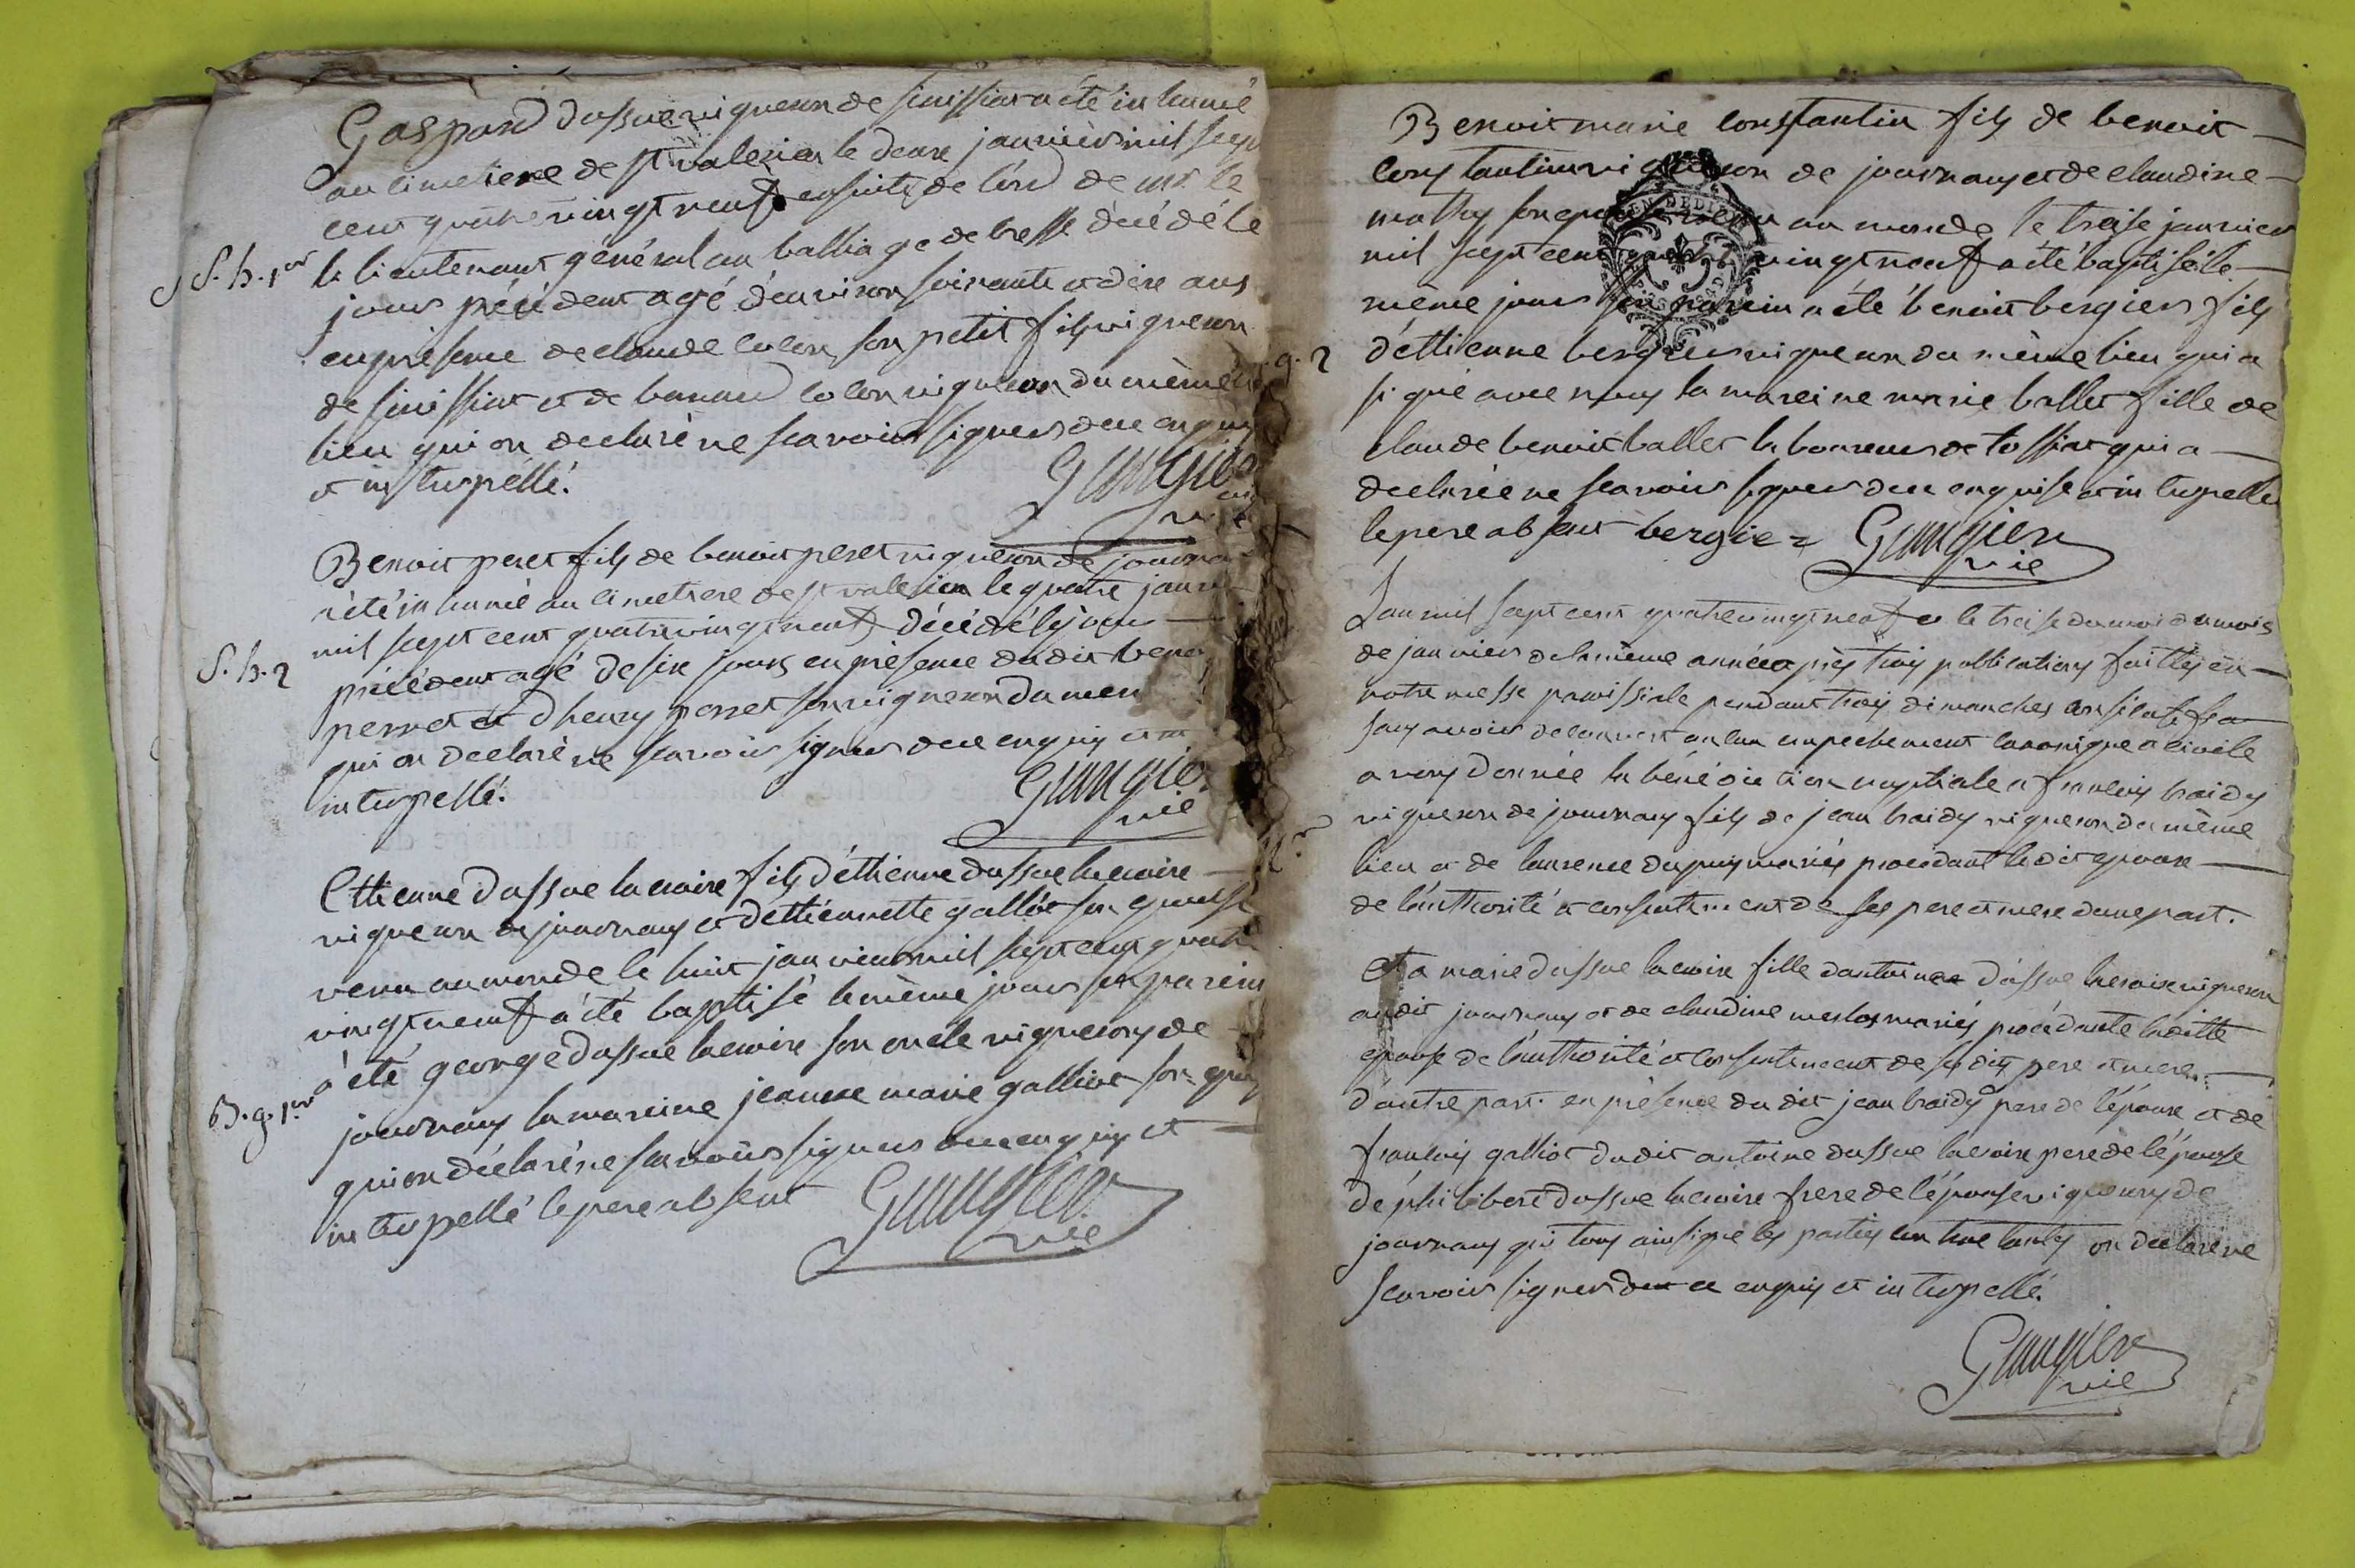 Gaspard dassue vigneron de simissiat a été in humé
au cimetiere de st valerien le deux janvier mil sept
cent quatre vingt neuf ensuite de l'ord de mr le
S. h. 1er le lieutenant général au balliage de bresse décédé le
jour précédent agé d'environ soixante et dixe ans
en présence de claude colon son petit fils vigneron
de simissiat et de benoid colon vigneron du même
lieu qui on declaré ne scavoir signer de ce enquis
et interpellé.
Benoit peret fils de benoit peret vigneron de journa
a été in humé au cimetiere de st valerien le quatre janvi
mil sept cent quatre vingt neuf décédé le jour
S. h. 2 précédent agé de six jours en présence dudit beno
perret et d heury perret son vigneron du mem
qui on declaré ne scavoir signer de ce enquis et
interpellé.
vic
Ettienne dassue lacroire fils d'éthienne dassue lacroire
vigneron de journans et d'éttiennette galliot son epouse
venu au monde le huit janvier mil sept cent quatre
vingt neuf a été baptisé le même jour son parein
B. g. 1er a été george dassue lacroire son oncle vigneron de
journans la mareine jeanne marie galliot son
qui on déclaré ne scavoir signer de ce enquis et
interpellé le pere absent
vic
Benoit marie constantin fils de benoit
constantin vigneron de journans et de claudine
mathy son epouse venu au monde le treise janvier
mil sept cent quatre vingt neuf a été baptisé le
même jour son parein a été benoit bergier fils
g. 2 d'éttienne bergier vigneron du même lieu qui a
signé avec nous la mareine marie ballet fille de
claude benoit ballet laboureur de tossiat qui a
declarée ne scavoir signer de ce enquise et interpellé
le pere absent bergier
vic
L'an mil sept cent quatre vingt neuf et le treise du moi du mois
de janvier de la même année après trois publications faittes en
notre messe paroissiale pendant trois dimanches consécutifs
sans avoir decouvert aucun empechement canonique et civile
avons donnée la bénédiction nuptiale a francois braidy
vigneron de journans fils de jean braidy vigneron du même
lieu et de laurence dupuy mariés procedant ledit epoux
de l'authorité et consentement de ses pere et mere d'une part.
Et a marie dassue lacroire fille d'antoine dassue lacroire vigneron
audit journans et de claudine mariés procédante laditte
epouse de l'authorité et consentement de sesdits pere et mere
d'autre part. en présence du dit jean braidy pere de l'époux et de
francois galliot dudit antoine dassue lacroire pere de l'épouse
de philibert dassue lacroire frere de l'épouse vignerons de
journans qui tous ainsi que les parties on declaré ne
scavoir signer de ce enquis et interpellé.
vic